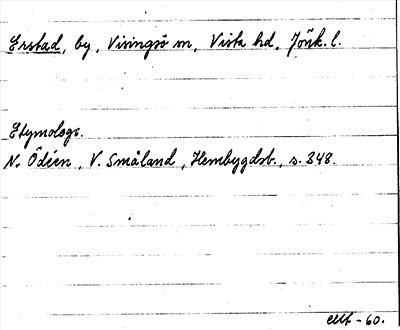 Erstad, by, Visingsö sn, Vista hd, Jönk. l.
Etymologi.
N. Ödéen, V. Småland, Hembygdsb., s. 348.
-60.